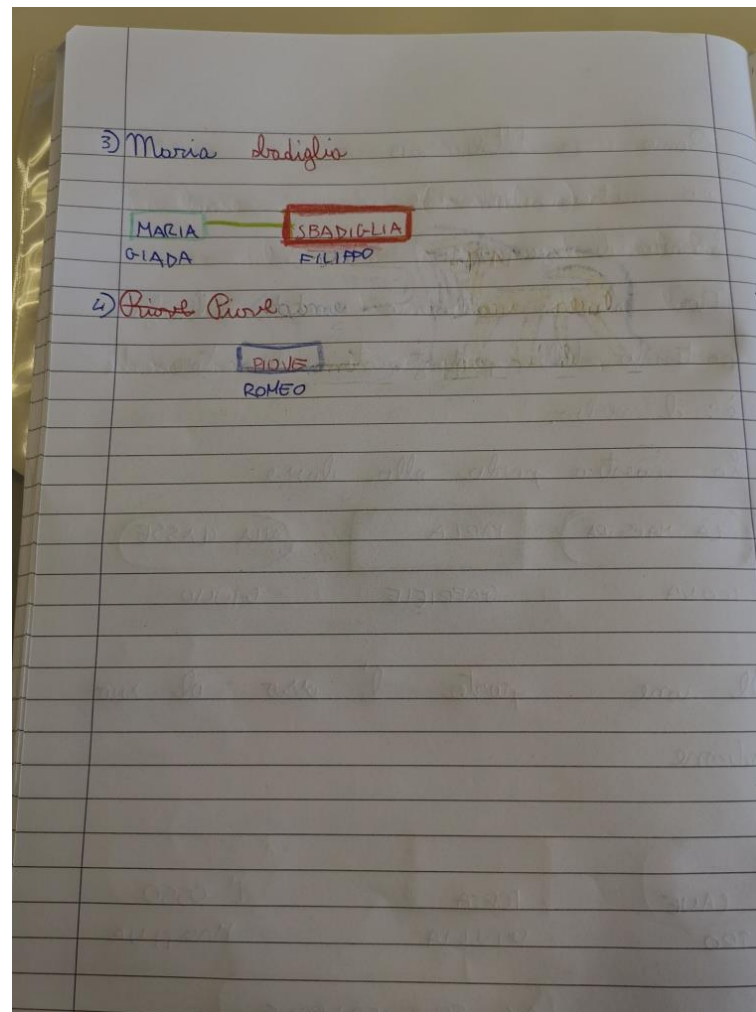 3) Maria sbadiglia
MARIA SBADIGLIA
GIADA FILIPPO
4) Piove Piove
PIOVE
ROMEO